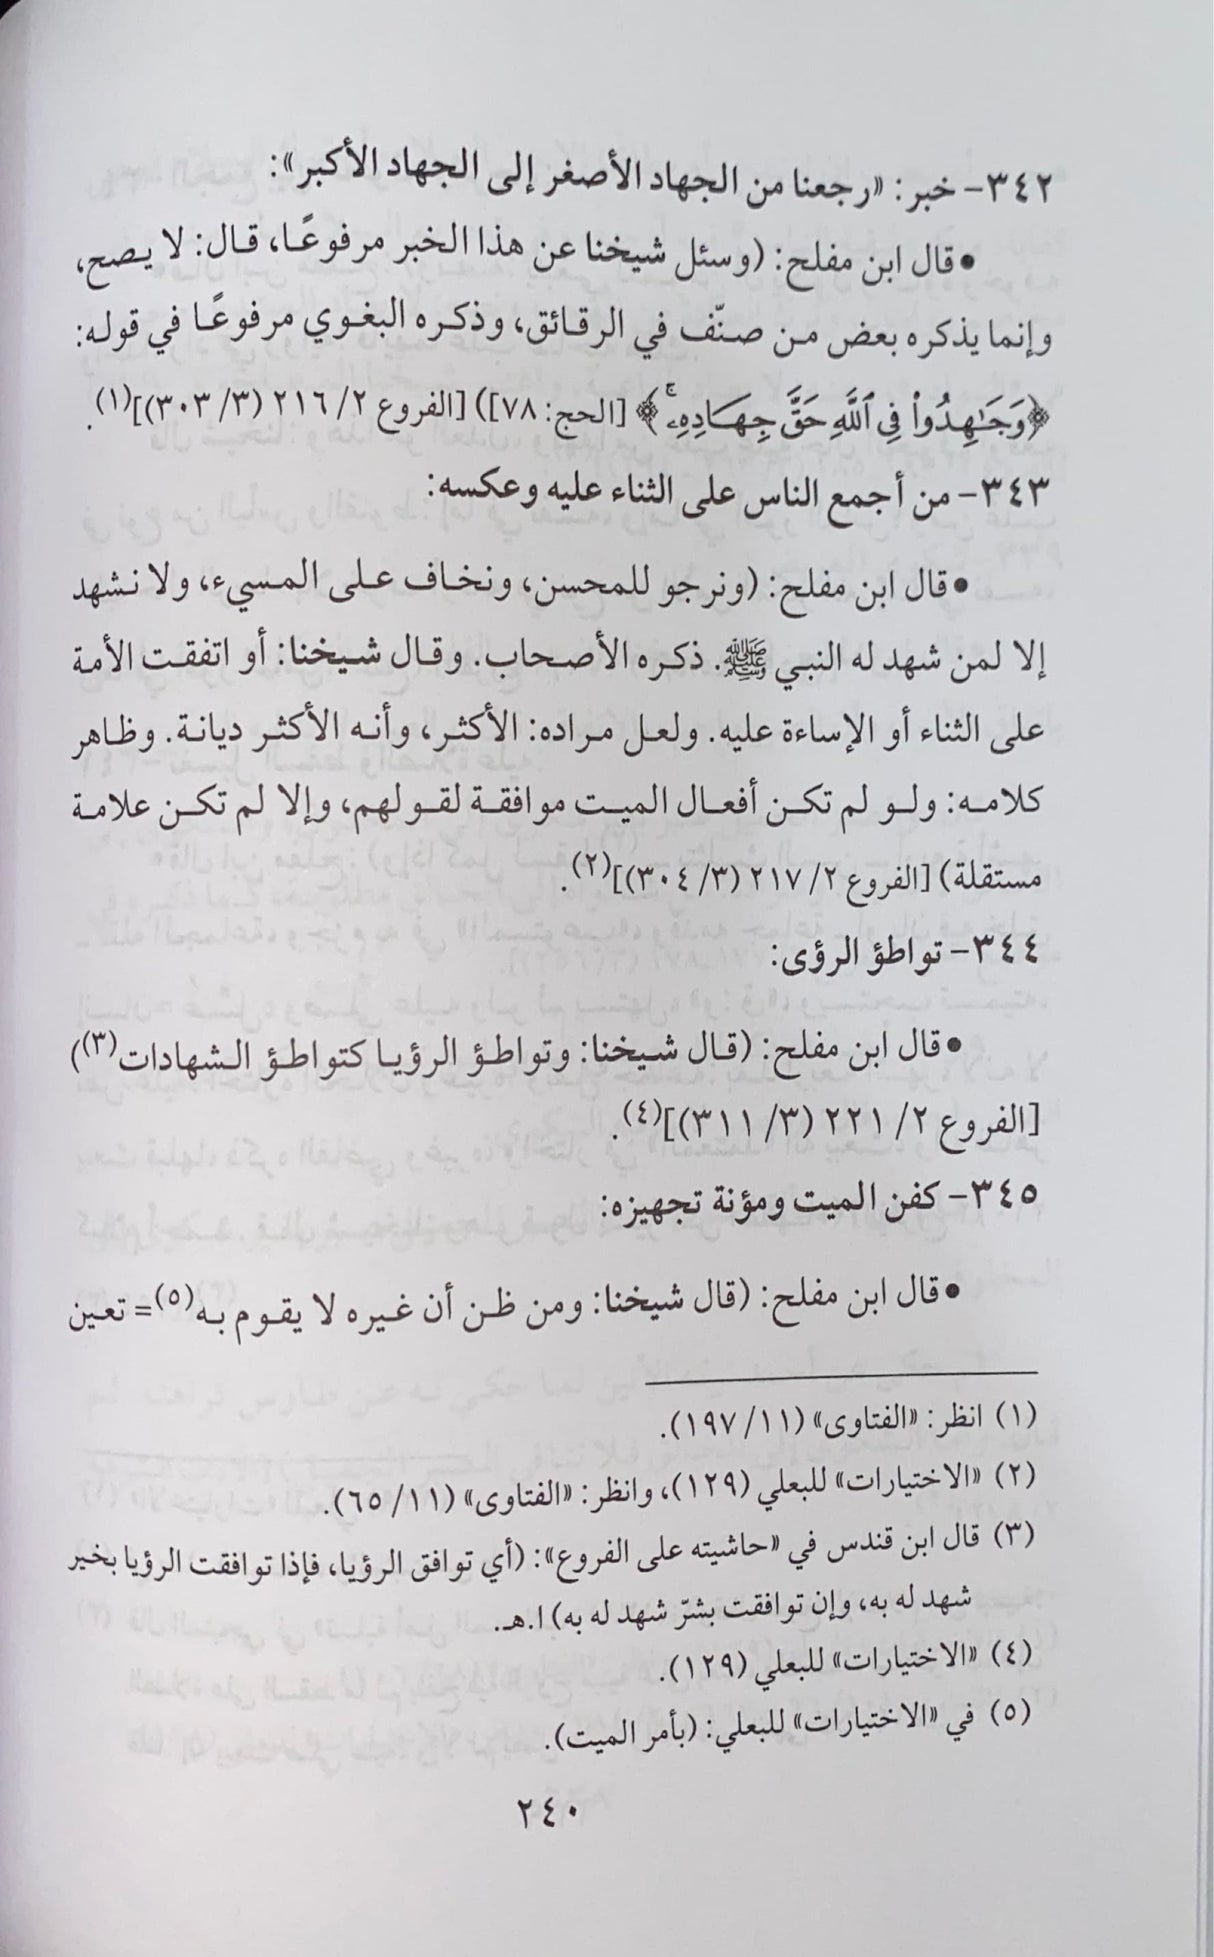 ٣٤٢- خبر: «رجعنا من الجهاد الأصغر إلى الجهاد الأكبر»:
• قال ابن مفلح: (وسئل شيخنا عن هذا الخبر مرفوعًا، قال: لا يصح،
وإنما يذكره بعض من صنّف في الرقائق، وذكره البغوي مرفوعًا في قوله:
﴿وَجَـٰهِدُوا۟ فِى ٱللَّهِ حَقَّ جِهَادِهِۦۚ﴾ [الحج: ٧٨]) [الفروع ٢/ ٢١٦ (٣/ ٣٠٣)](١).
٣٤٣- من أجمع الناس على الثناء عليه وعكسه:
• قال ابن مفلح: (ونرجو للمحسن، ونخاف على المسيء، ولا نشهد
إلا لمن شهد له النبي ﷺ. ذكره الأصحاب. وقال شيخنا: أو اتفقت الأمة
على الثناء أو الإساءة عليه. ولعل مراده: الأكثر، وأنه الأكثر ديانة. وظاهر
كلامه: ولو لم تكن أفعال الميت موافقة لقولهم، وإلا لم تكن علامة
مستقلة) [الفروع ٢/ ٢١٧ (٣/ ٣٠٤)](٢).
٣٤٤- تواطؤ الرؤى:
• قال ابن مفلح: (قال شيخنا: وتواطؤ الرؤيا كتواطؤ الشهادات(٣))
[الفروع ٢/ ٢٢١ (٣/ ٣١١)](٤).
٣٤٥- كفن الميت ومؤنة تجهيزه:
• قال ابن مفلح: (قال شيخنا: ومن ظن أن غيره لا يقوم به(٥)= تعين
(١) انظر: «الفتاوى» (١١/ ١٩٧).
(٢) «الاختيارات» للبعلي (١٢٩)، وانظر: «الفتاوى» (١١/ ٦٥).
(٣) قال ابن قندس في «حاشيته على الفروع»: (أي توافق الرؤيا، فإذا توافقت الرؤيا بخير
شهد له به، وإن توافقت بشرّ شهد له به) ا.هـ.
(٤) «الاختيارات» للبعلي (١٢٩).
(٥) في «الاختيارات» للبعلي: (بأمر الميت).
٢٤٠